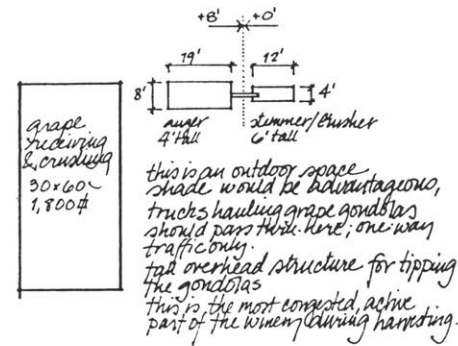 +8' +0'
19' 12'
8' 4'
auger
4' tall
stemmer/crusher
6' tall
grape
receiving
& crushing
30x60~
1,800⌗
this is an outdoor space
shade would be advantageous,
trucks hauling grape gondolas
should pass thru here; one-way
traffic only.
tall overhead structure for tipping
the gondolas
this is the most congested, active
part of the winery during harvesting.